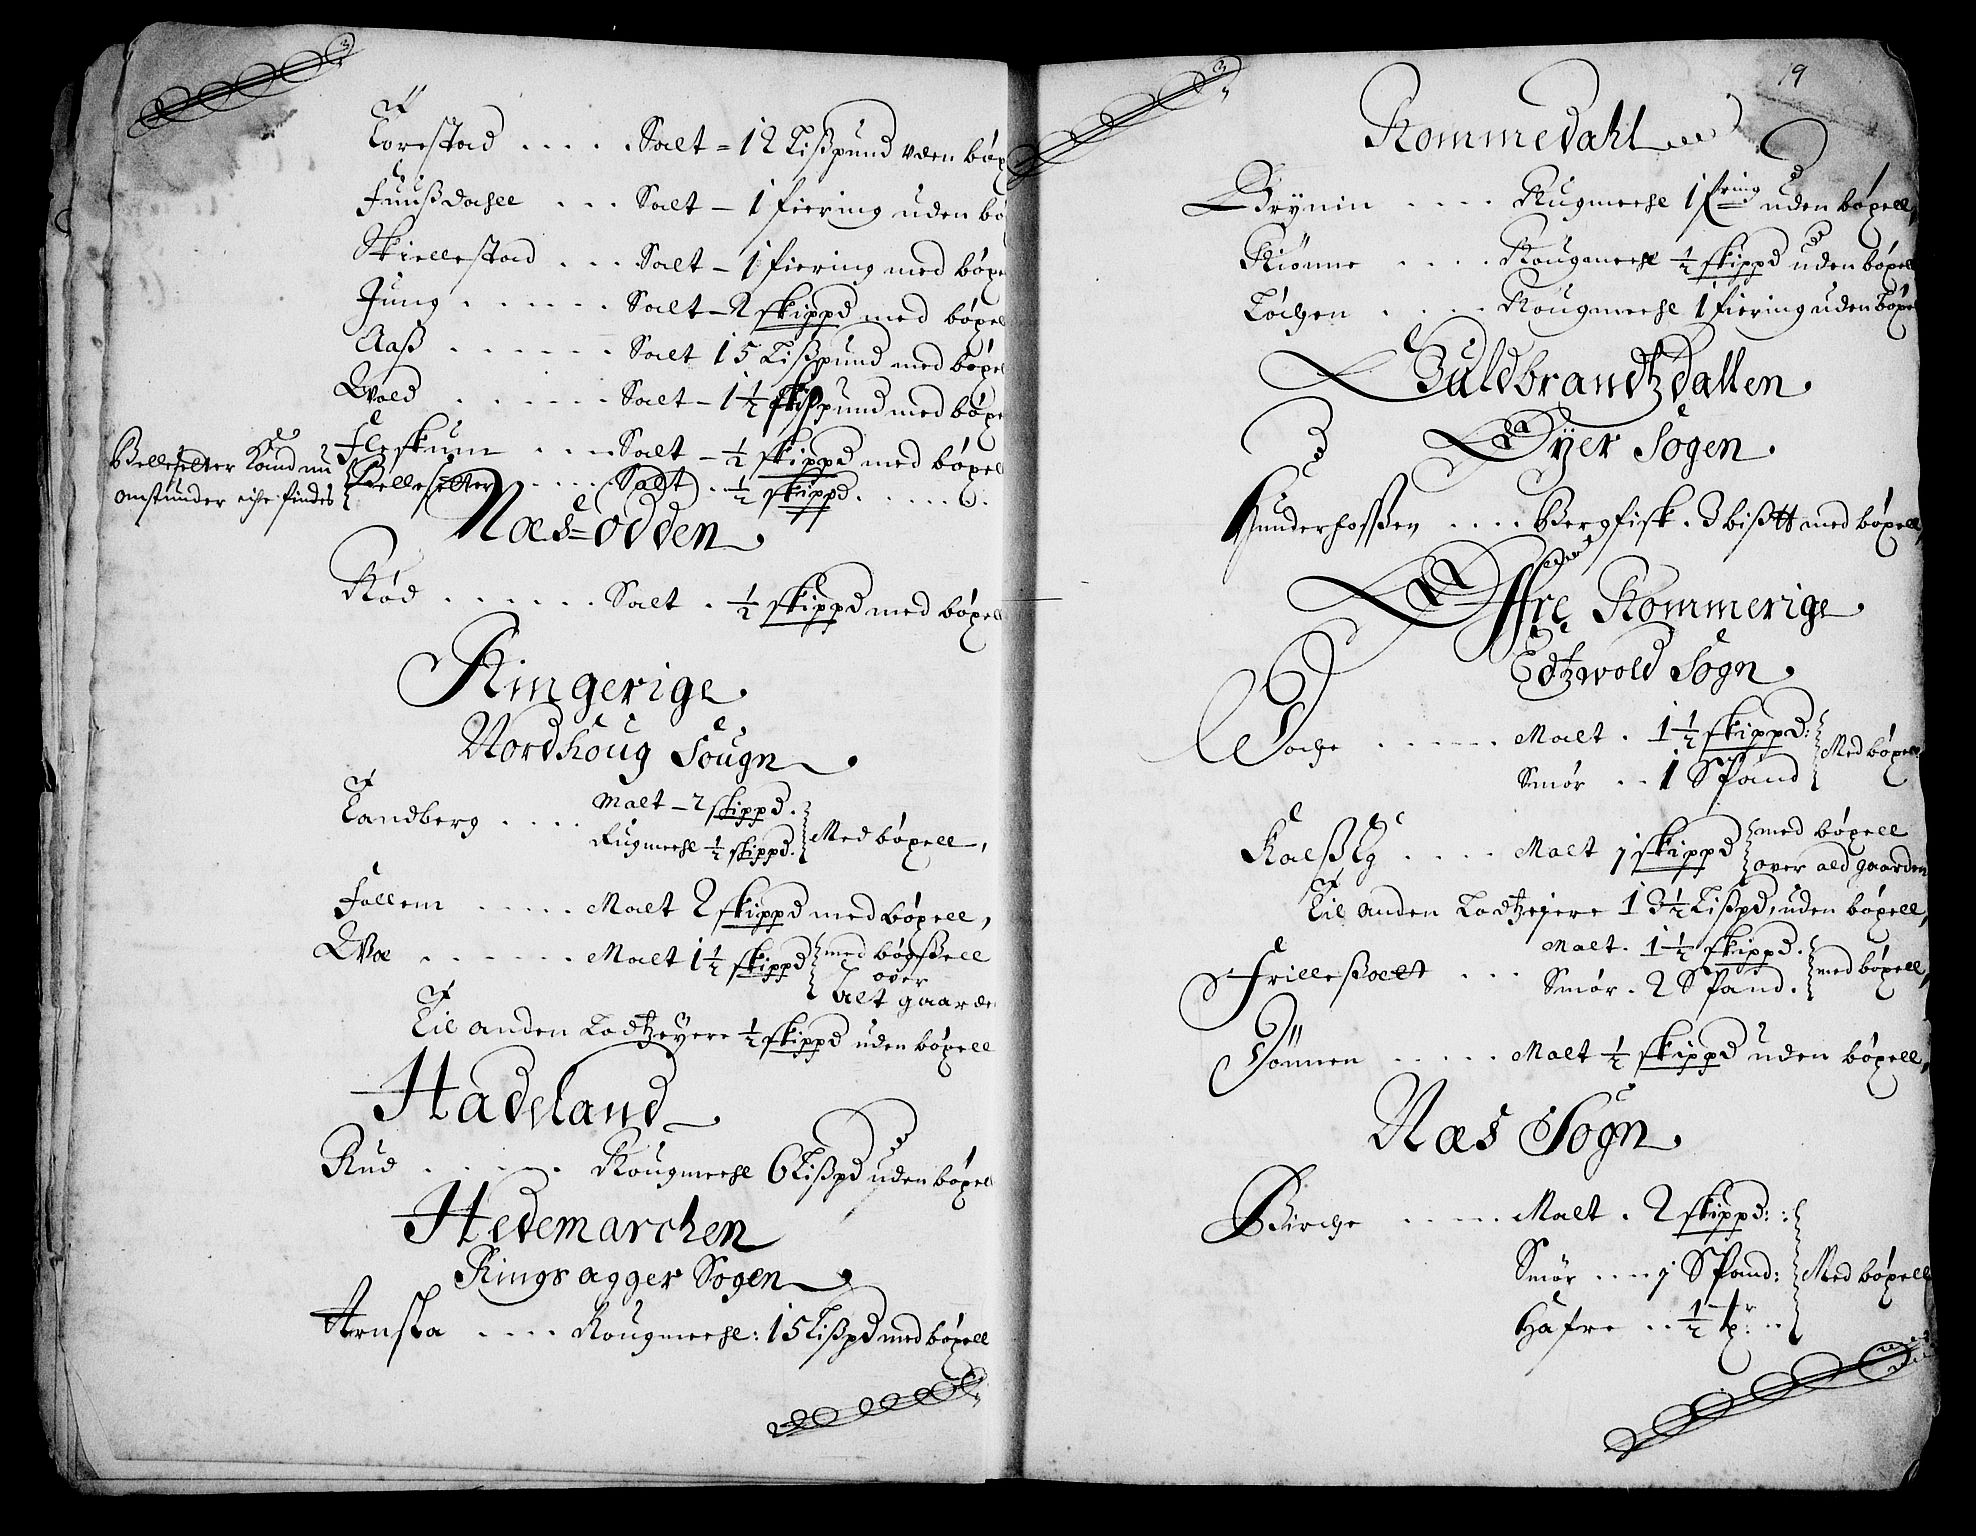 Torestad . . . . . Salt = 12 Lißpund uden bøx
Fuußdahll . . . Salt – 1 fiering uden bø
Skiellestad . . . Salt – 1 fiering med bøxe
Jung . . . . . . Salt – 2 skippd med bøxel
Aaß . . . . . . Salt 15 Lißpund med bøxel
Wold . . . . . . Salt – 1½ skippund med bøxe
Fleskum . . . . Salt – ½ skippd med bøxell
Belleselter Kand nu
omstunder iche findes
Belleselter . . . . Salt . ½ skippd . . . . . .
Næs=odden
Rød . . . . . . Salt . ½ skippd med bøxell
Ringerige
Nordhoug Sougn
Tandberg . . . . Malt – 2 skippd .
Rugmeehl ½ skippd . Med bøxell,
Follem . . . . . Malt 2 skippd med bøxell,
Wæ . . . . . . Malt 1½ skippd med bøgßell
over
alt gaarde
Til anden Lodtzeyere ½ skippd uden bøxell
Hadeland
Rud . . . . . Rougmeehl 6 Lißpd uden bøxell
Hedemarchen
Ringsagger Sogen
Arnsta . . . . Rougmeehl: 15 Lißpd med bøxell
19
Rommedahl
Grynin . . . . Rugmeehl 1 fring uden bøxell,
Kiønne . . . . Rougmeehl ½ skippd uden bøxell
Løchen . . . . Rougmeehl 1 fiering uden bøxel
Guldbrandtzdallen
Øyer Sogen
Hunderfosßen . . . . Bergfisk . 3 bißtt med bøxell,
Øffre Rommerige
Edtzwold Sogn
Doche . . . . . . Malt . 1½ skippd:
Smør . . 1 Spand Med bøxell
Kalßeg . . . . Malt 1 skippd med bøxell
over ald gaarden
Til anden Lodtzejere 13½ Lißpd, uden bøxell,
Frilleßaelt . . . Malt . 1½ skippd .
Smør . 2 Spand . med bøxell,
Dønnen . . . . . Malt ½ skippd uden bøxell,
Næs Sogn
Birche . . . . . Malt . 2 skippd: :
Smør . . . . 1 Spand: Med bøxell
Hafre . . ½ tr: . .